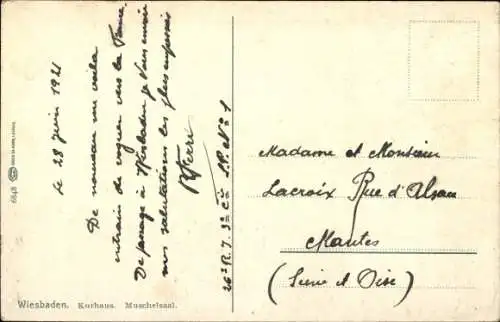 le 28 juin 1921
De nouveau me voila
entrain de voguer vers la France.
De passage à Wiesbaden je vous envoi
mes salutations les plus empressées
R Ferré
26e R.T. 3e Cie S.P. No 1
Madame et Monsieur
Lacroix Rue d'Alsace
Mantes
(Seine et Oise)
6848
Wiesbaden. Kurhaus. Muschelsaal.